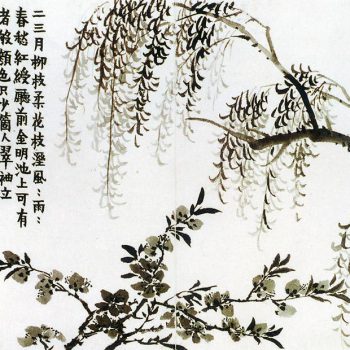 二三月柳枝柔花枝溼風〻雨〻
春愁紅綬廳前金明池上可有
者般顏色只少箇人翠袖立